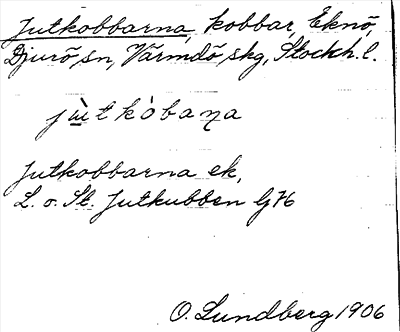 Jutkobbarna, kobbar, Eknö,
Djurö sn, Värmdö skg, Stockh. l.
jùtkòbaɳa
Jutkobbarna ek,
L. o. St. Jutkubben GJ6
O. Lundberg 1906